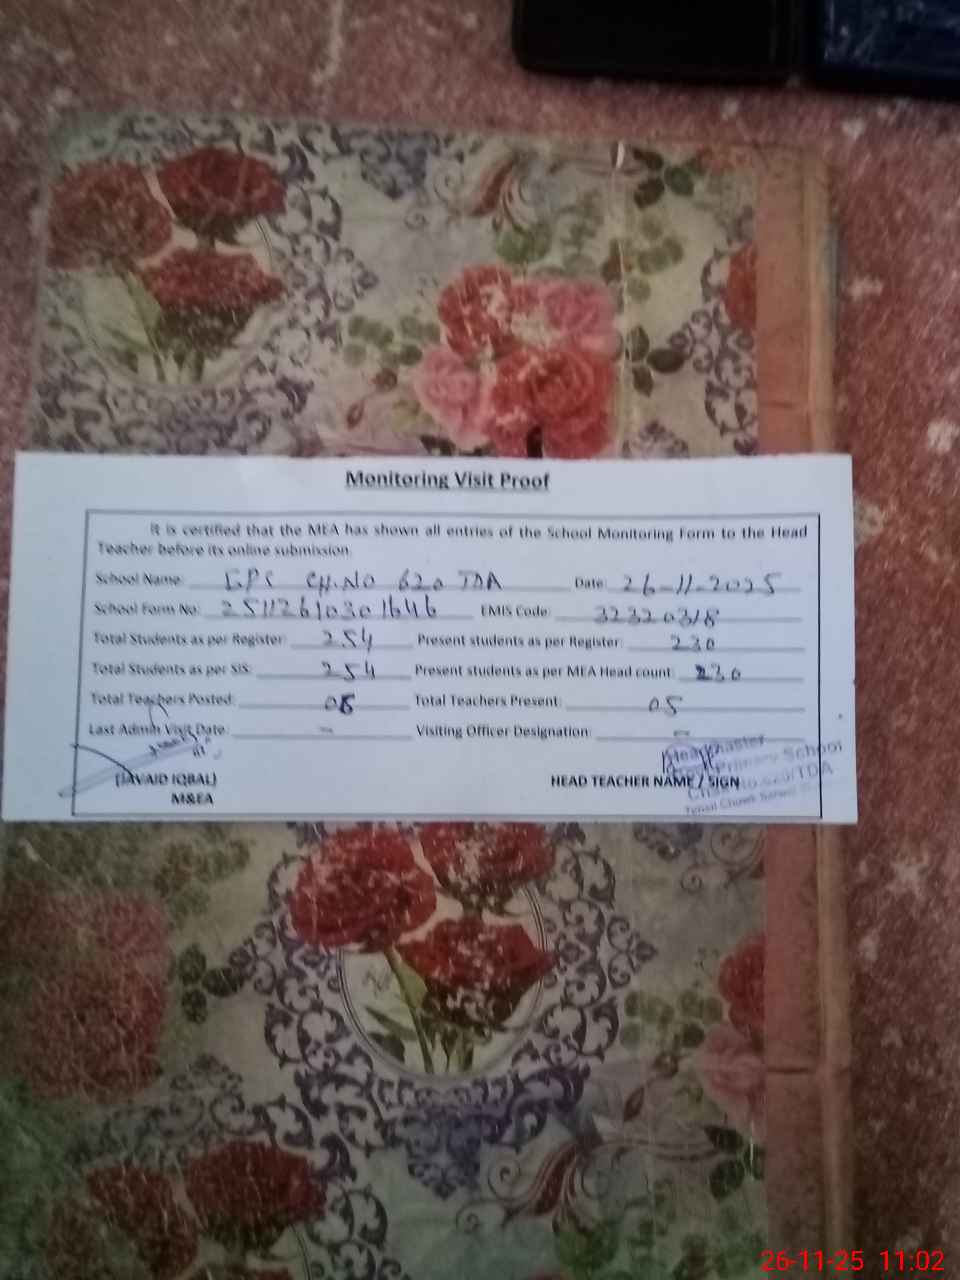 Monitoring Visit Proof
It is certified that the MEA has shown all entries of the School Monitoring Form to the Head
Teacher before its online submission.
School Name: GPS CH.NO 620 TDA Date: 26-11-2025
School Form No: 2511261030 1646 EMIS Code: 32320318
Total Students as per Register: 254 Present students as per Register: 230
Total Students as per SIS: 254 Present students as per MEA Head count: 230
Total Teachers Posted: Total Teachers Present: 05
Last Admin Visit Date: – Visiting Officer Designation: –
(JAVAID IQBAL)
M&EA
HEAD TEACHER NAME / SIGN
Headmaster
Primary School
Chak No.620/TDA
Tehsil Chowk Sarwar
26-11-25 11:02